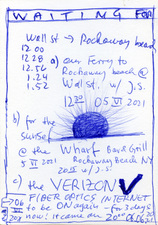 WAITING FOR
Wall st → Rockaway beach
12.00
12.28 a) our Ferry to
12.56 Rockaway beach @
1.24 Wall st. w/ J.S.
1.52
12 30 05 VI 2021
b) for the
sunset
@ the Wharf Bay & Grill
5 VI 2021 Rockaway Beach NY
w/ J.S.
c) the VERIZON V
FIBER OPTICS INTERNET
to be ON again - for 3 days
now! it came on 20 00